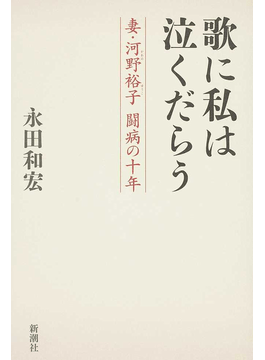 歌に私は
泣くだらう
妻・河野裕子 闘病の十年
永田和宏
新潮社